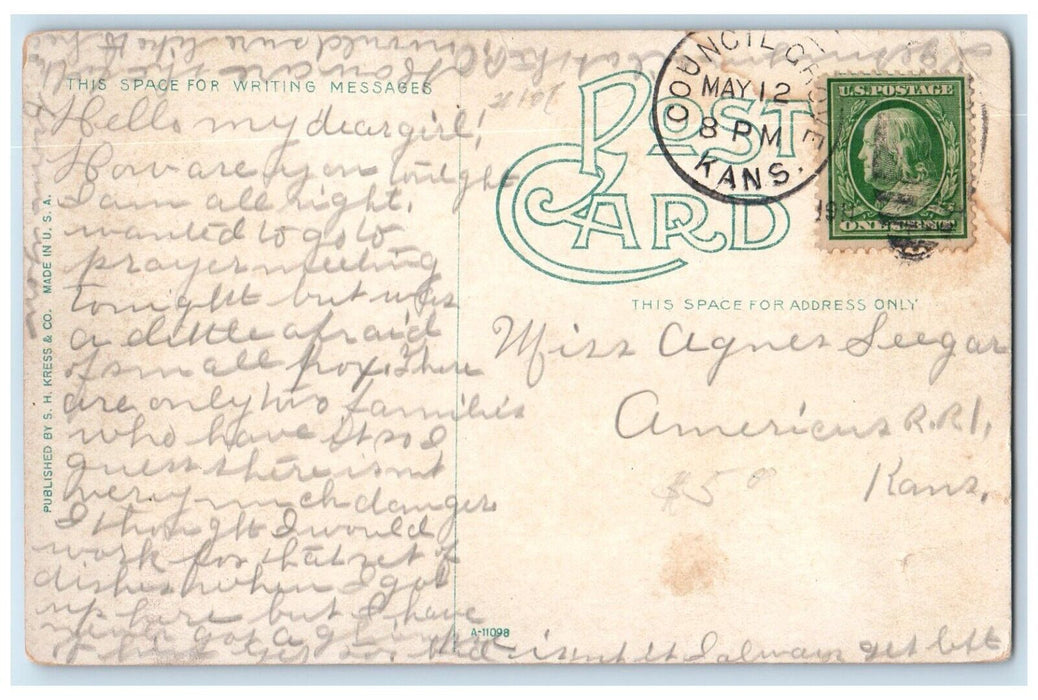 THIS SPACE FOR WRITING MESSAGES
Hello my dear girl!
How are you tonight
I am all right.
wanted to go to
prayer meeting
tonight but was
a little afraid
of small pox. There
are only two families
who have it so I
guess there isnt
very much danger
I thought I would
work for that set of
dishes when I got
up here but I have
never got a
of bad isnt it I always get left
would sure like to
POST CARD
COUNCIL GROVE
MAY 12
8 PM
KANS.
U.S. POSTAGE
ONE CENT
THIS SPACE FOR ADDRESS ONLY
Miss Agnes Seegar
Americus R.R.1,
Kans.
$5
PUBLISHED BY S. H. KRESS & CO. MADE IN U. S. A.
A-11098